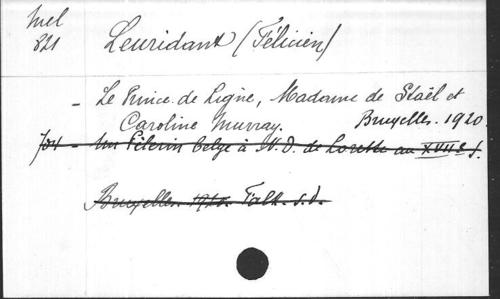 Mel
821
Leuridant (Félicien)
- Le Prince de Ligne, Madame de Staël et
Caroline Murray. Bruxelles. 1920.
704 - Un Pèlerin belge à N. D. de Lorette au XVIIe S.
Bruxelles. 1920. Falk. s.d.